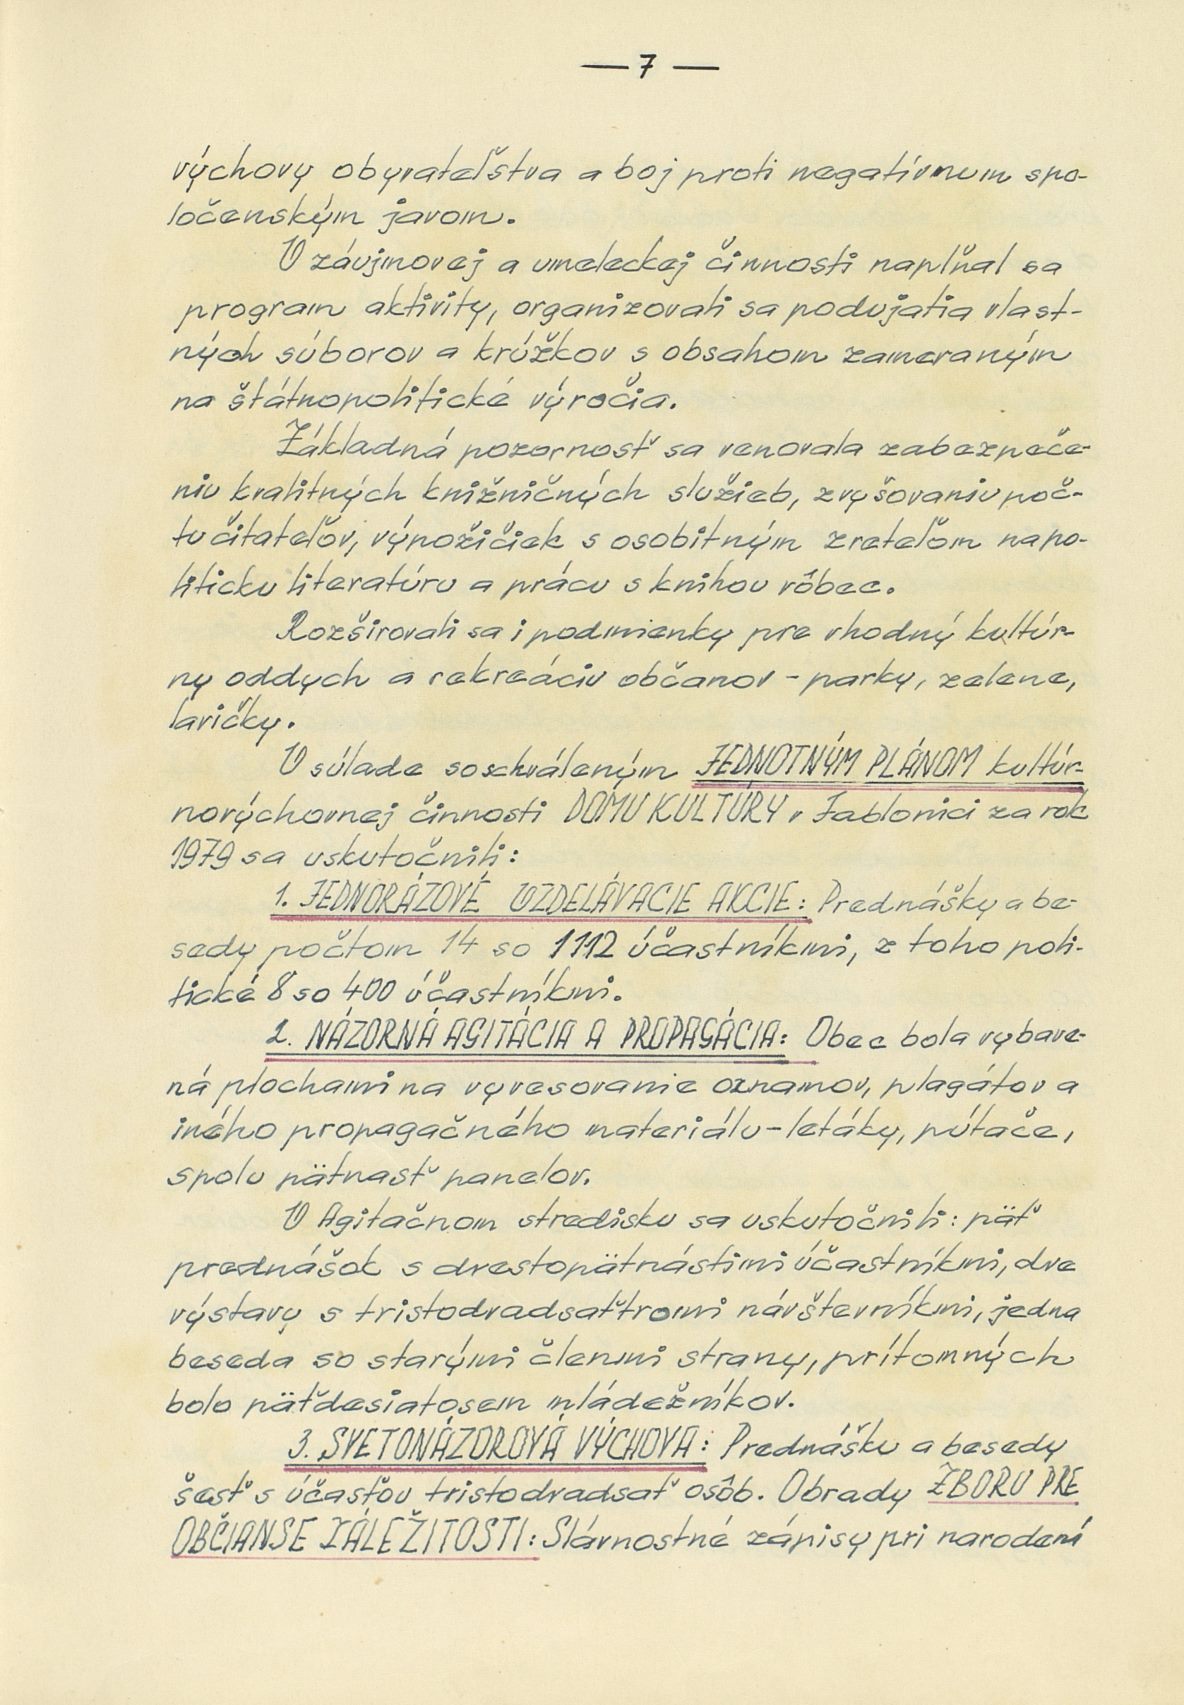 — 7 —
výchovy obyvateľstva a boj proti negatívnum spo-
ločenským javom.
V záujmovej a umeleckej činnosti naplňal sa
program aktivity, organizovali sa podujatia vlast-
ných súborov a krúžkov s obsahom zameraným
na štátnopolitické výročia.
Základná pozornosť sa venovala zabezpeče-
niu kvalitných knižničných služieb, zvyšovaniu poč-
tu čitateľov, výpožičiek s osobitným zreteľom na po-
liticku literatúru a prácu s knihou vôbec.
Rozširovali sa i podmienky pre vhodný kultúr-
ny oddych a rekreáciu občanov - parky, zelene,
lavičky.
V súlade so schváleným JEDNOTNÝM PLÁNOM kultúr-
novýchovnej činnosti DOMU KULTÚRY v Jablonici za rok
1979 sa uskutočnili:
1. JEDNORÁZOVÉ VZDELÁVACIE AKCIE: Prednášky a be-
sedy počtom 14 so 1112 účastníkmi, z toho poli-
tické 8 so 400 účastníkmi.
2. NÁZORNÁ AGITÁCIA A PROPAGÁCIA: Obec bola vybave-
ná plochami na vyvesovanie oznamov, plagátov a
iného propagačného materiálu - letáky, pútače,
spolu pätnasť panelov.
V Agitačnom stredisku sa uskutočnili: päť
prednášok s dvestopätnástimi účastníkmi, dve
výstavy s tristodvadsaťtromi návštevníkmi, jedna
beseda so starými členmi strany, prítomných
bolo päťdesiatosem mládežníkov.
3. SVETONÁZOROVÁ VÝCHOVA: Prednášku a besedy
šesť s účasťou tristodvadsať osôb. Obrady ZBORU PRE
OBČIANSE ZÁLEŽITOSTI: Slávnostné zápisy pri narodení